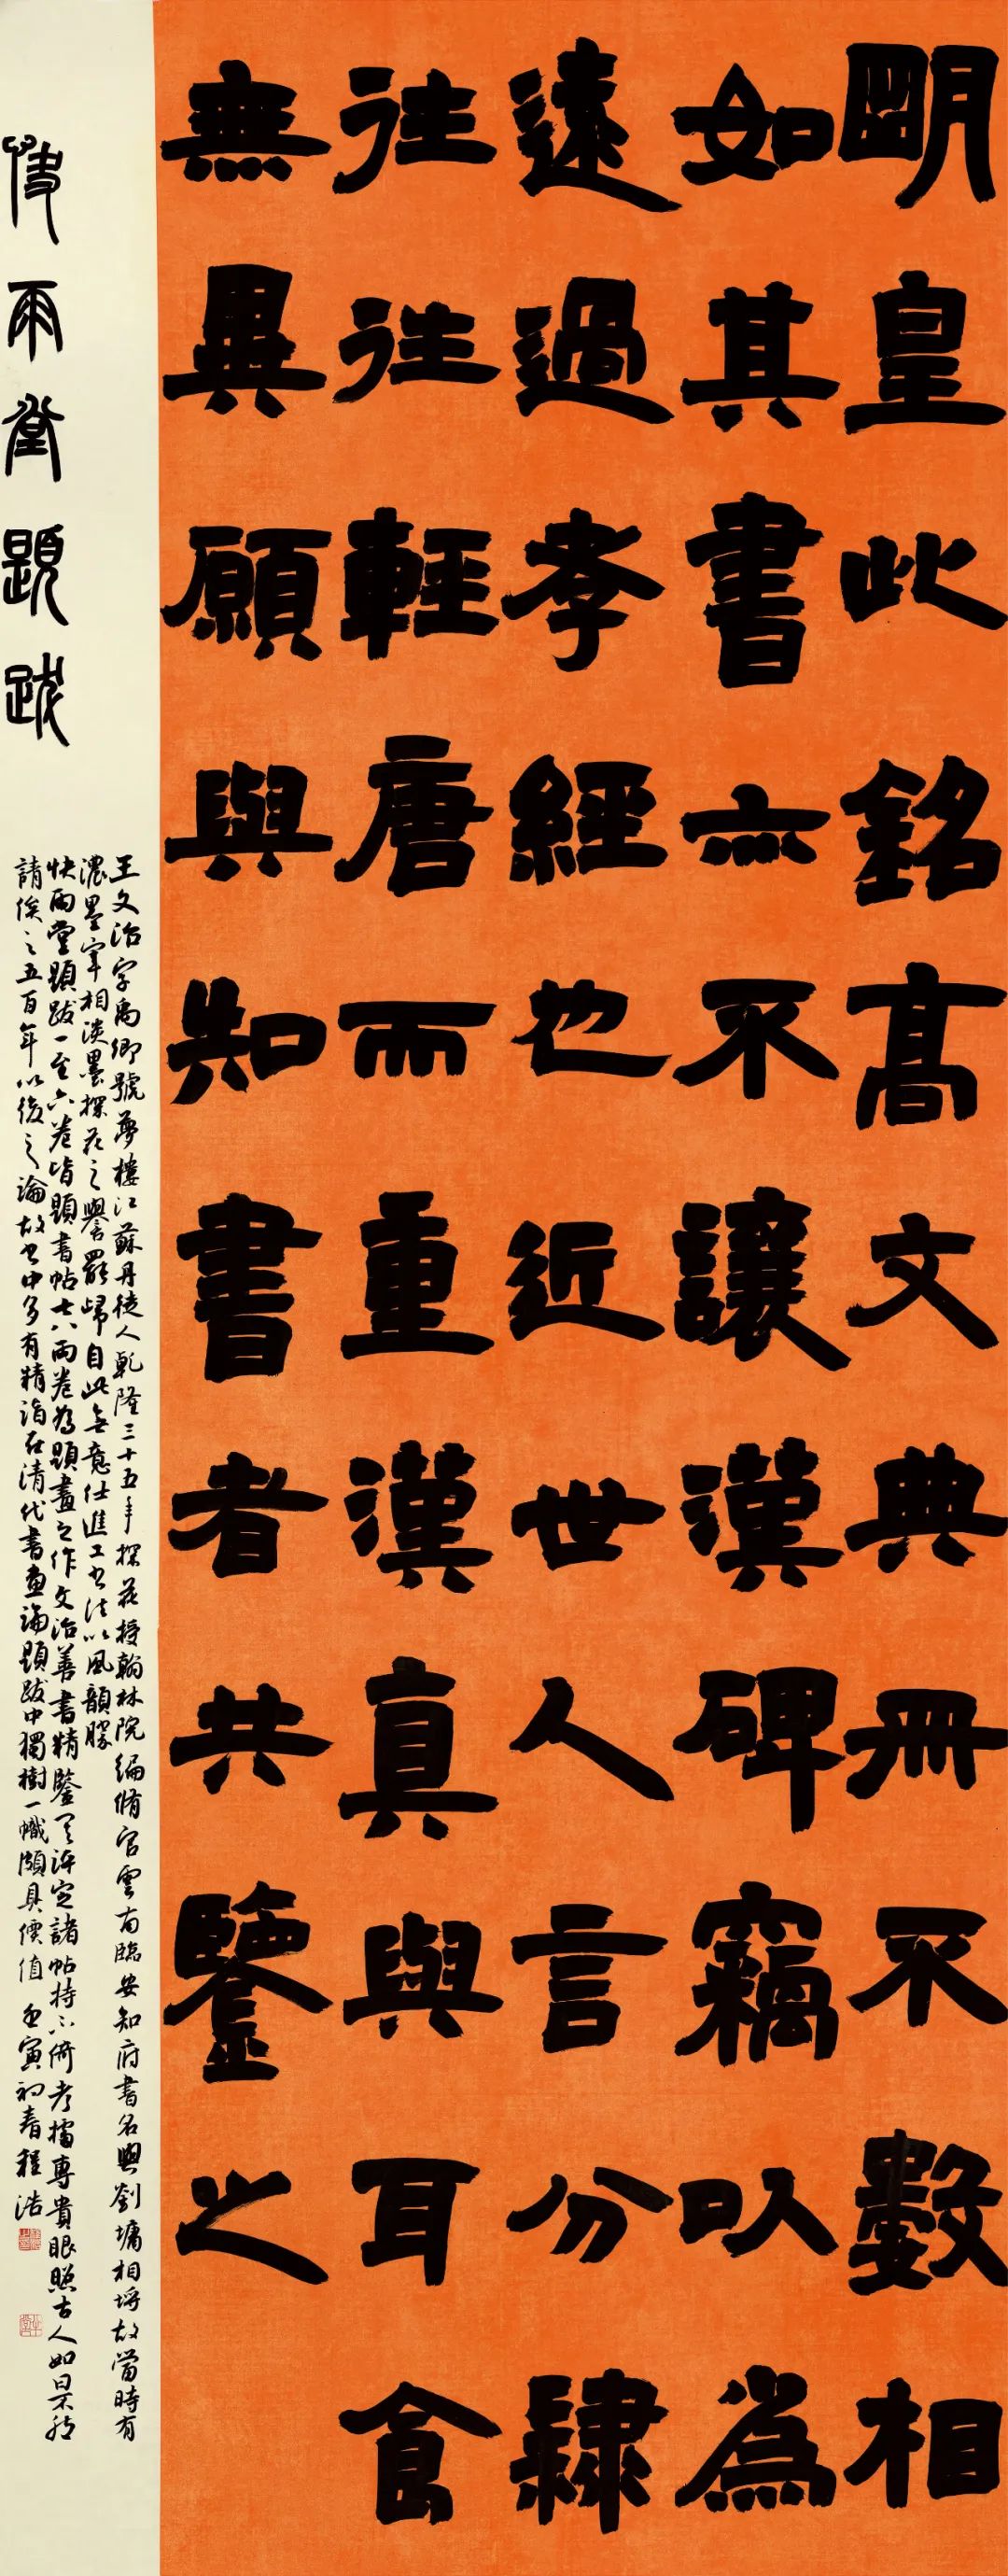 明皇此銘高文典冊不數相
如其書亦不讓漢碑竊以為
遠過孝經也近世人言分隸
往往輕唐而重漢真與耳食
無異願與知書者共鑒之
快雨堂題跋
王文治字禹卿號夢樓江蘇丹徒人乾隆三十五年探花授翰林院編脩官雲南臨安知府書名與劉墉相埒故當時有
濃墨宰相淡墨探花之譽罷歸自此無意仕進工書法以風韻勝
快雨堂題跋一至六卷皆題書帖七八兩卷為題畫之作文治善書精鑒評定諸帖持不倚考據專貴眼照古人如是不
請俟之五百年以後之論故書中多有精論在清代書畫論題跋中獨樹一幟頗具價值壬寅初春程浩